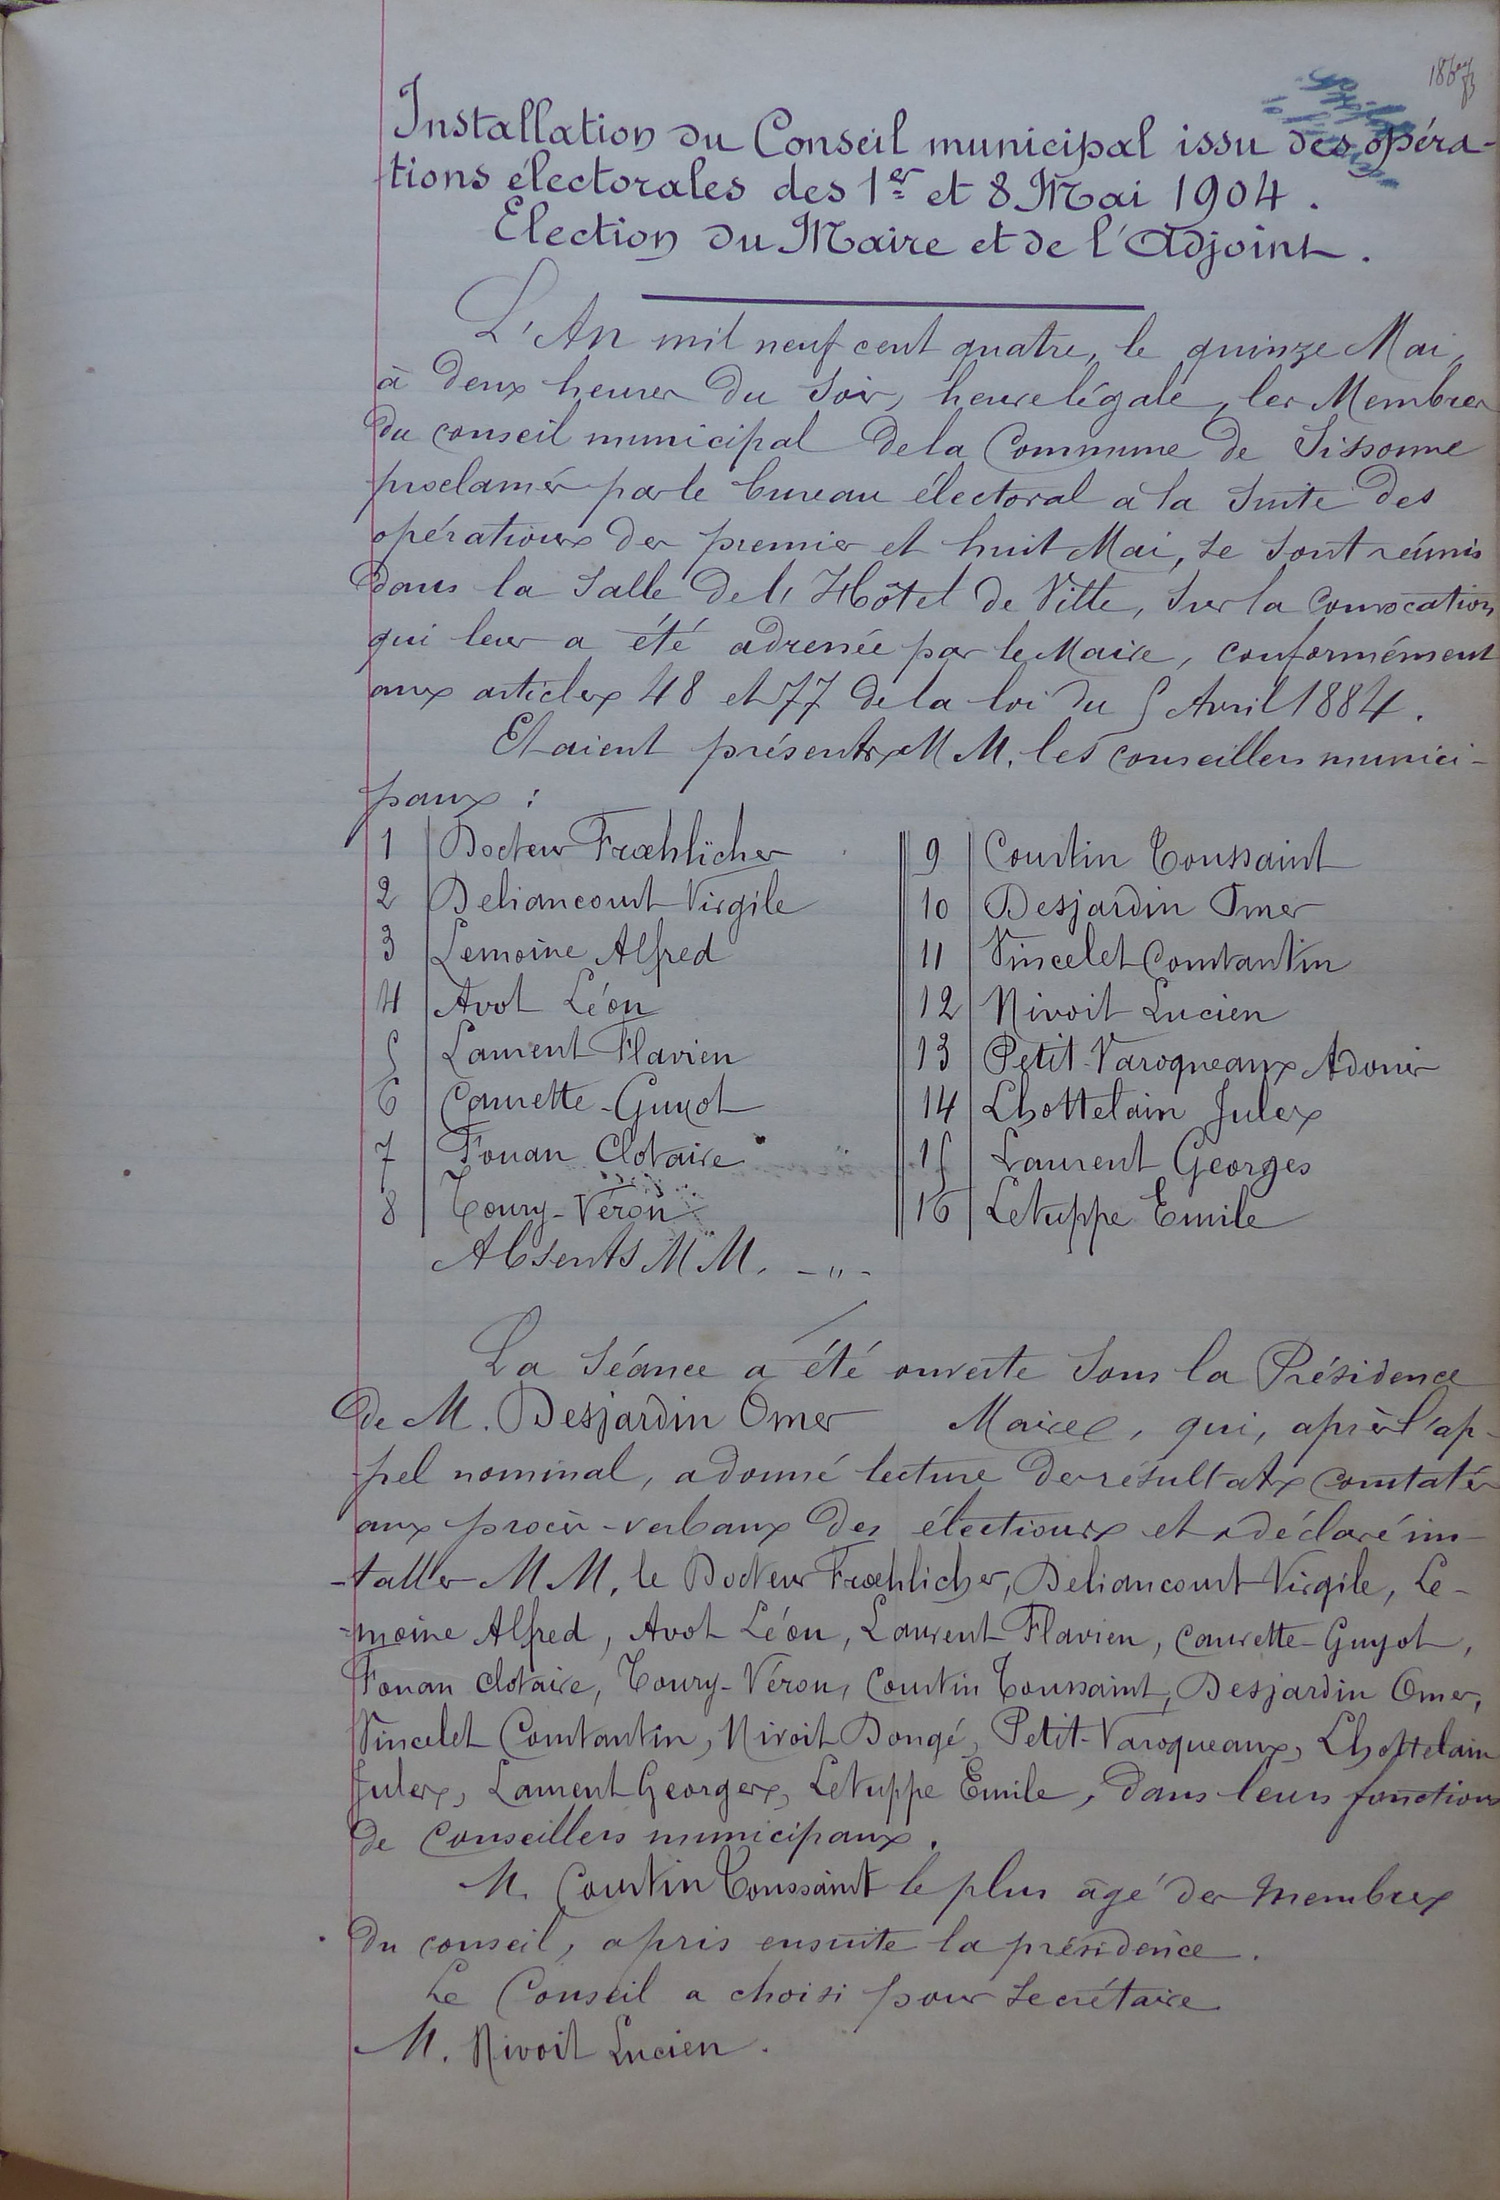 Installation du Conseil municipal issu des opéra-
tions électorales des 1er et 8 Mai 1904.
Election du Maire et de l'Adjoint.
L'An mil neuf cent quatre, le quinze Mai,
à deux heures du soir, heure légale, les Membres
du conseil municipal de la Commune de Sissonne
proclamés par le bureau électoral à la suite des
opérations des premier et huit Mai, se sont réunis
dans la salle de l'Hôtel de Ville, sur la convocation
qui leur a été adressée par le Maire, conformément
aux articles 48 et 77 de la loi du 5 Avril 1884.
Etaient présents MM. les conseillers munici-
paux :
1 Docteur Frœhlicher
2 Deliancourt Virgile
3 Lemoine Alfred
4 Avot Léon
5 Laurent Flavien
6 Caurette-Guyot
7 Fouan Clotaire
8 Toury-Véron
9 Courtin Toussaint
10 Desjardin Omer
11 Vincelet Constantin
12 Nivoit Lucien
13 Petit-Varoqueaux Adonis
14 Lhottelain Jules
15 Laurent Georges
16 Letuppe Emile
Absents MM. -"-
La séance a été ouverte sous la Présidence
de M. Desjardin Omer Maire, qui, après l'ap-
pel nominal, a donné lecture des résultats constatés
aux procès-verbaux des élections et a déclaré ins-
-taller MM. le Docteur Frœhlicher, Deliancourt Virgile, Le-
-moine Alfred, Avot Léon, Laurent Flavien, Caurette-Guyot,
Fouan Clotaire, Toury-Véron, Courtin Toussaint, Desjardin Omer,
Vincelet Constantin, Nivoit Dongé, Petit-Varoqueaux, Lhottelain
Jules, Laurent Georges, Letuppe Emile, dans leurs fonctions
de conseillers municipaux.
M. Courtin Toussaint le plus âgé des membres
du conseil, a pris ensuite la présidence.
Le Conseil a choisi pour secrétaire
M. Nivoit Lucien.